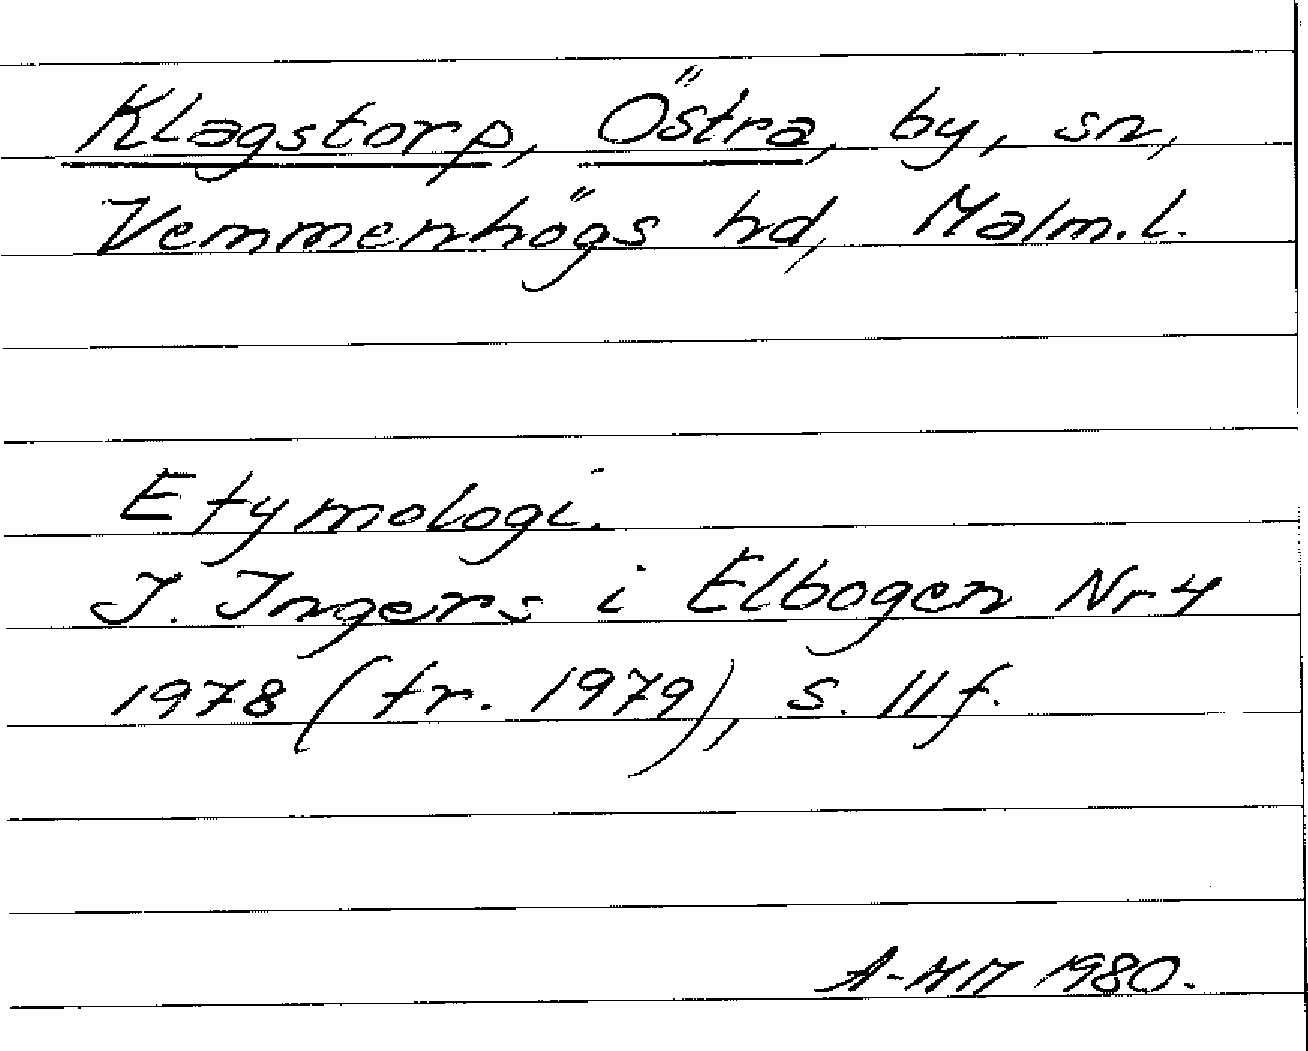 Klagstorp, Östra, by, sn,
Vemmenhögs hd, Malm.l.
Etymologi.
I. Ingers i Elbogen Nr 4
1978 (tr. 1979), s. 11 f.
A-HM 1980.